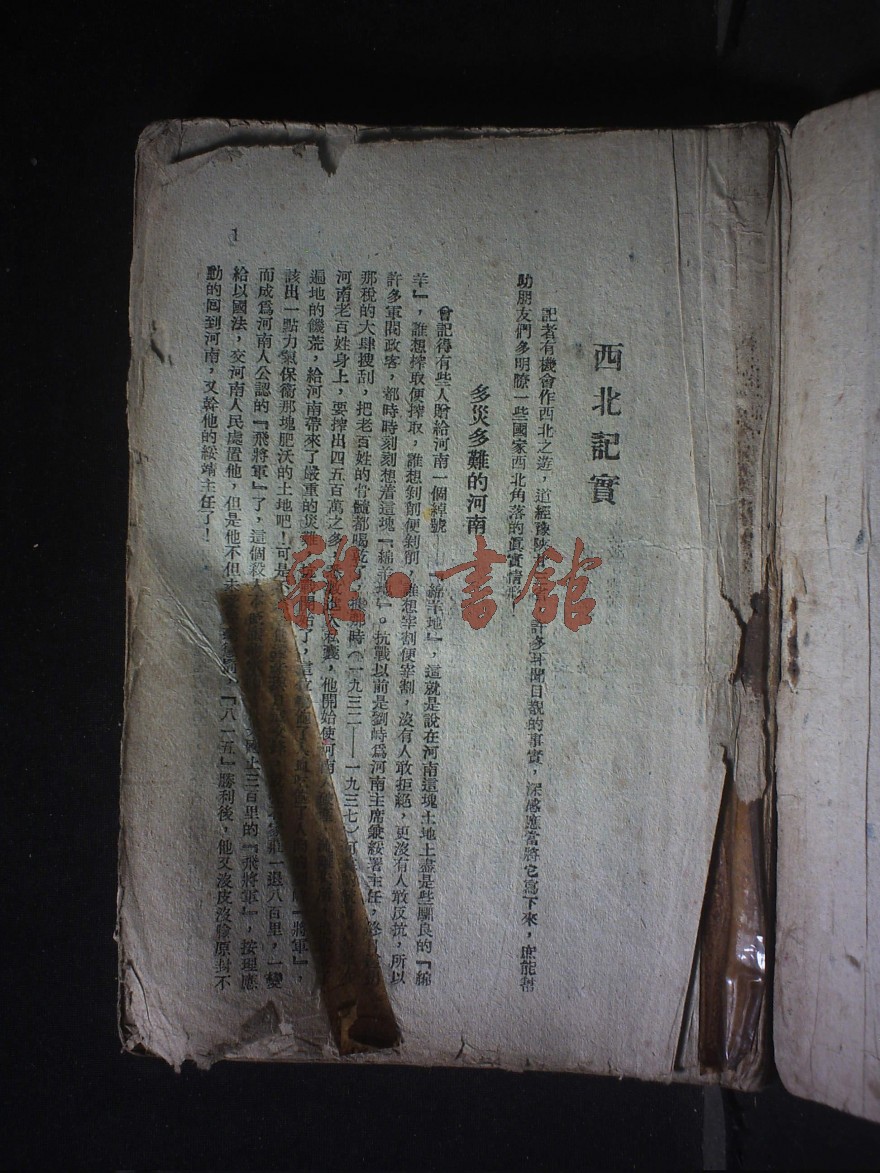 西北記實
記者有機會作西北之遊，道經豫陝甘許多耳聞目覩的事實，深感應當將它寫下來，庶能幫
助朋友們多明瞭一些國家西北角落的眞實情形
多災多難的河南
曾記得有些人贈給河南一個綽號——『綿羊地』，這就是說在河南這塊土地上盡是些馴良的『綿
羊』，誰想搾取便搾取，誰想剝削便剝削，誰想宰割便宰割，沒有人敢拒絕，更沒有人敢反抗，所以
許多軍閥政客，都時時刻刻想着這塊『綿羊地』。抗戰以前是劉峙爲河南主席兼綏署主任，
那稅的大肆搜刮，把老百姓的骨髓都喝乾了，時（一九三二——一九三七）
河南老百姓身上，要搾出四五百萬之多，人私囊，他開始使河南
遍地的饑荒，給河南帶來了嚴重的災難將軍』，
該出一點力氣保衞那塊肥沃的土地吧！可是一退八百里，一變
而成爲河南人公認的『飛將軍』了，這個殺止三百里的『飛將軍』，按理應
給以國法，交河南人民處置他，但是他不但『八一五』勝利後，他又沒皮沒臉原封不
動的囘到河南，又幹他的綏靖主任了！
1
雜·書館